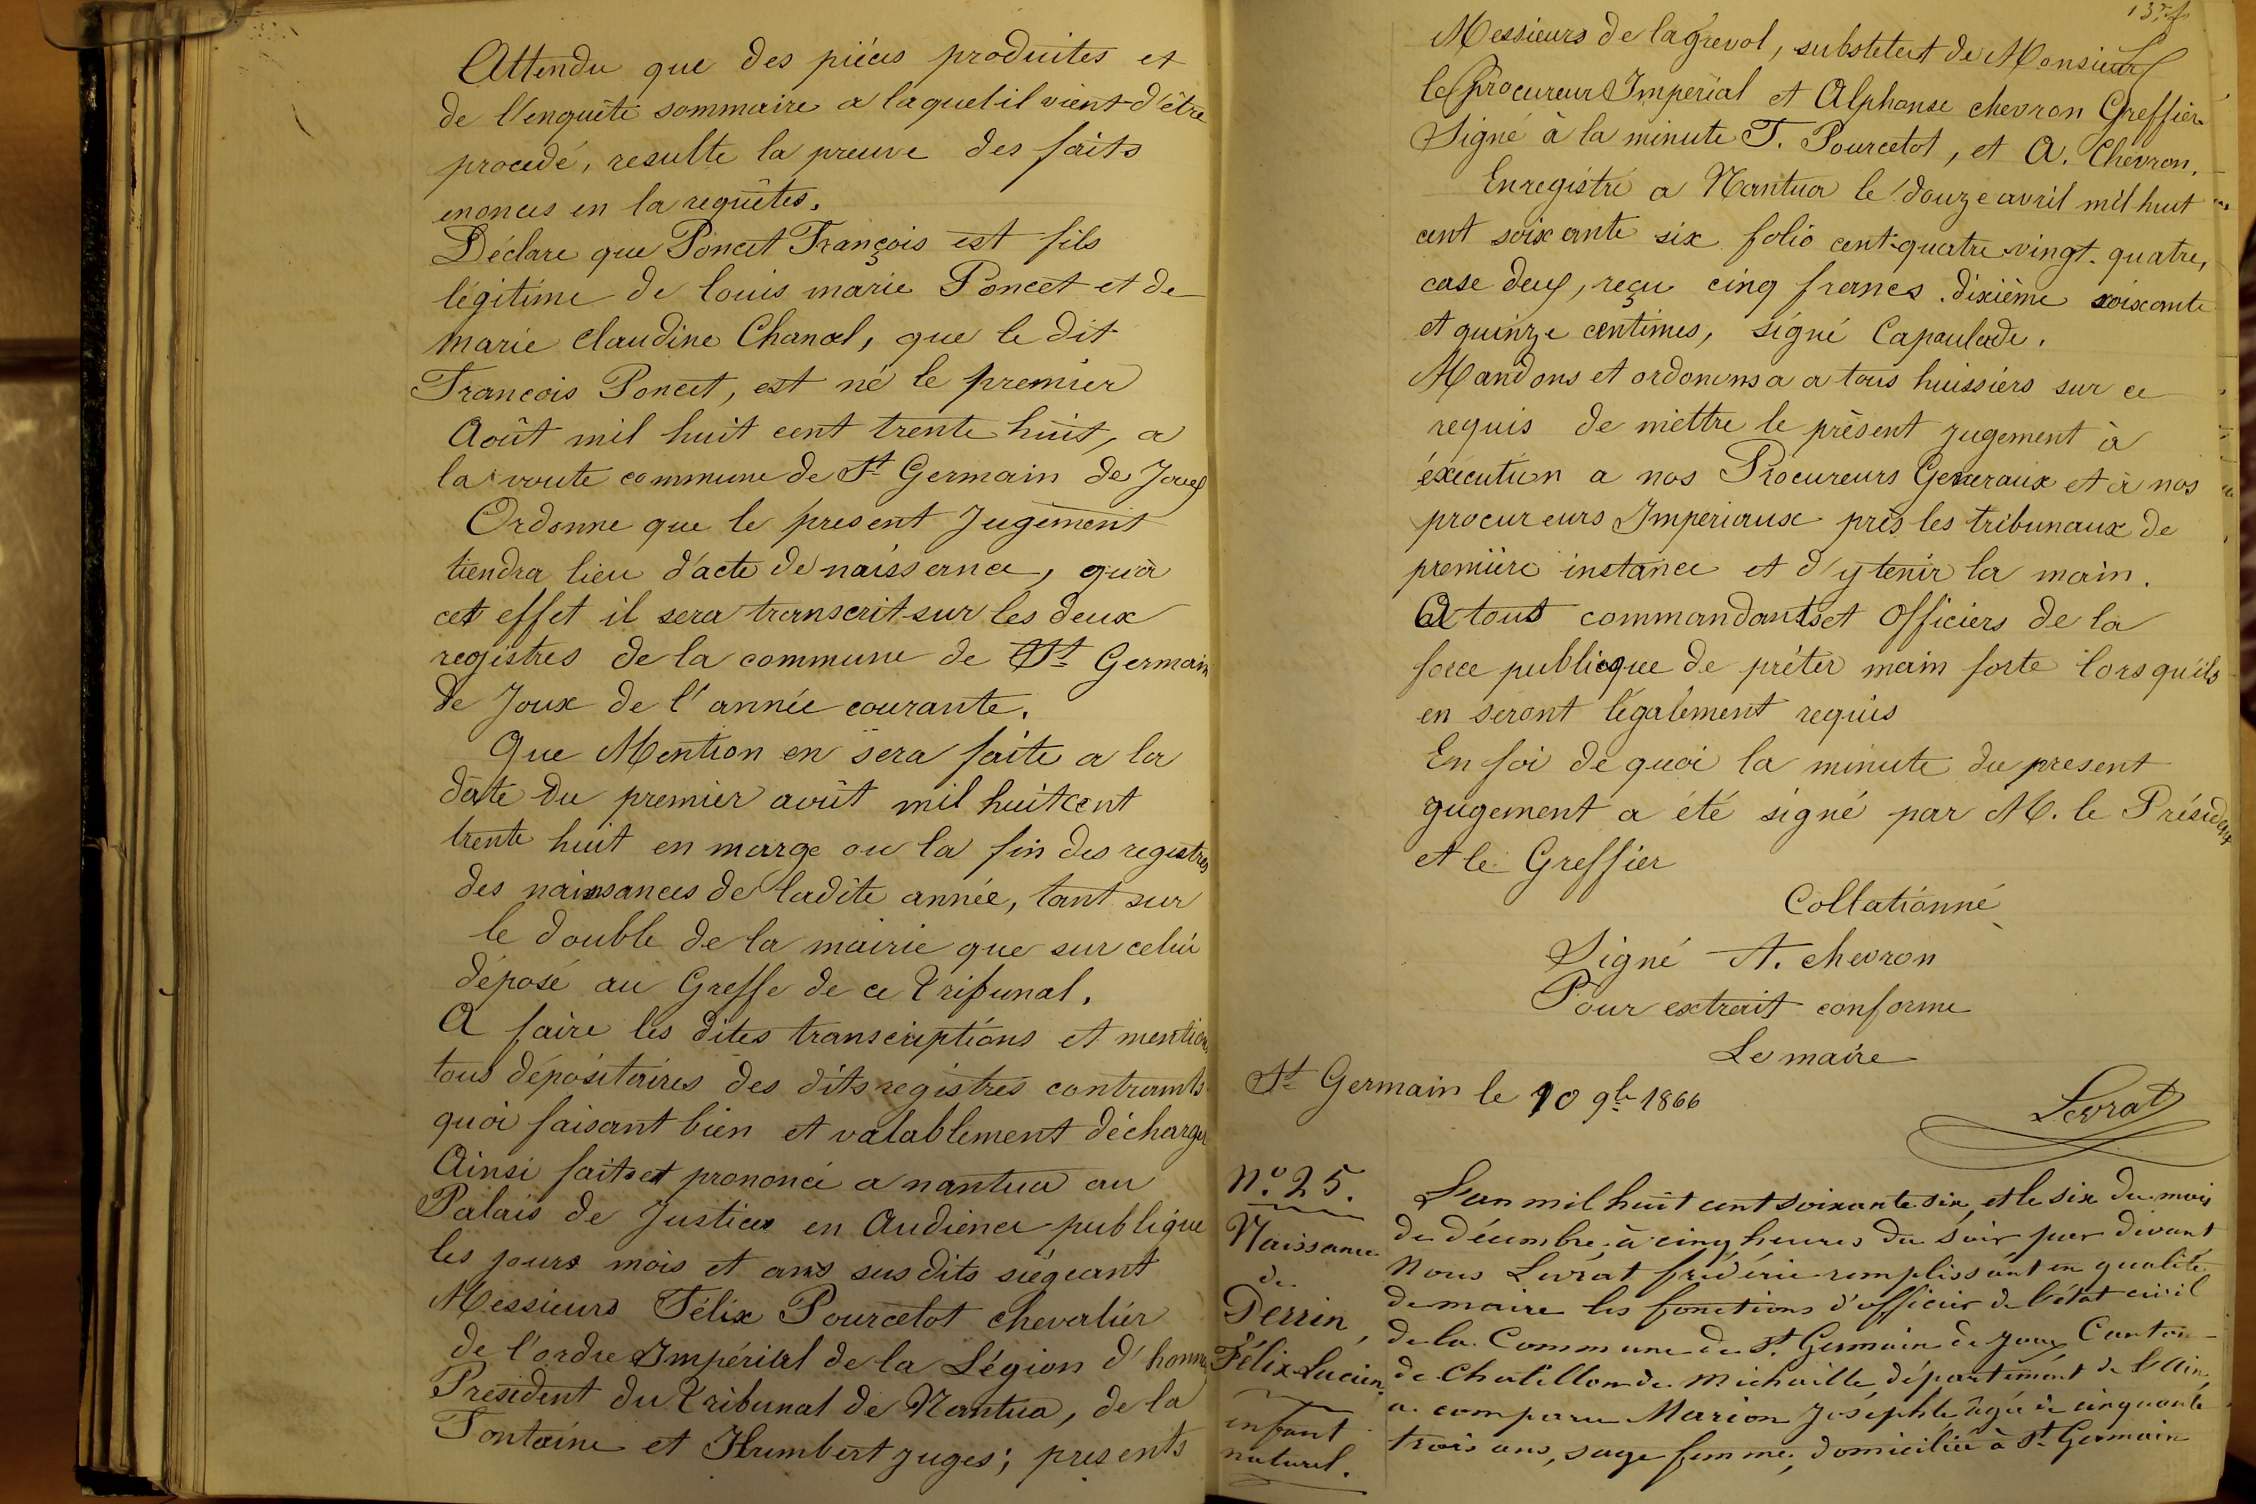 Attendu que des piéces produites et
de l'enquête sommaire a laquel il vient d'être
procedé, resulte la preuve des faits
enonces en la requêtes.
Déclare que Poncet François est fils
légitime de louis marie Poncet et de
marie claudine Chanal, que le dit
François Poncet, est né le premier
Août mil huit cent trente huit, a
la voute commune de St Germain de Joux
Ordonne que le présent Jugement
tiendra lieu d'acte de naissance, qu'à
cet effet il sera transcrit sur les deux
registres de la commune de St Germain
de Joux de l'année courante.
Que Mention en sera faite a la
date du premier août mil huit cent
trente huit en marge ou la fin des registres
des naissances de ladite année, tant sur
le double de la mairie que sur celui
déposé au Greffe de ce Tribunal.
A faire les dites transcriptions et mentions
tous dépositaires des dits registres contraints
quoi faisant bien et valablement déchargés
Ainsi fait et prononcé a nantua au
Palais de Justice en Audience publique
les jours mois et ans susdits siégeant
Messieurs Félix Pourcelot chevalier
de l'ordre Impérial de la Légion d'honn
President du Tribunal de Nantua, de la
Fontaine et Humbert juges; presents
Messieurs de lagrevol, substetut de Monsieur
le Procureur Impérial et Alphonse chevron Greffier
Signé à la minute F. Pourcelot, et A. Chevron.
Enregistré a Nantua le douze avril mil huit
cent soixante six folio cent quatre vingt quatre,
case deux, reçu cinq francs. dixième soixante
et quinze centimes, signé Capaulade.
Mandons et ordonnons a a tous huissiers sur ce
requis de mettre le présent jugement à
éxécution a nos Procureurs Generaux et à nos
procureurs Imperiaux près les tribunaux de
première instance et d'y tenir la main.
A tous commandants et Officiers de la
force publique de prêter main forte lorsqu'ils
en seront légalement requis
En foi de quoi la minute du present
jugement a été signé par M. le Président
et le Greffier
Collationné
Signé A. chevron
Pour extrait conforme
Le maire
St Germain le 10 9bre 1866
Levrat
No. 25.
Naissance
de
Perrin,
Félix Lucien,
enfant
naturel.
L'an mil huit cent soixante six, et le six du mois
de décembre, à cinq heures du soir par devant
Nous Levrat frédéric remplissant en qualité
de maire les fonctions d'officier de l'état civil
de la Commune de St Germain de Joux Canton
de Chatillon de Michaille, département de l'Ain,
a comparu Marion Josephte âgée de cinquante
trois ans, sage femme, domiciliée à St Germain